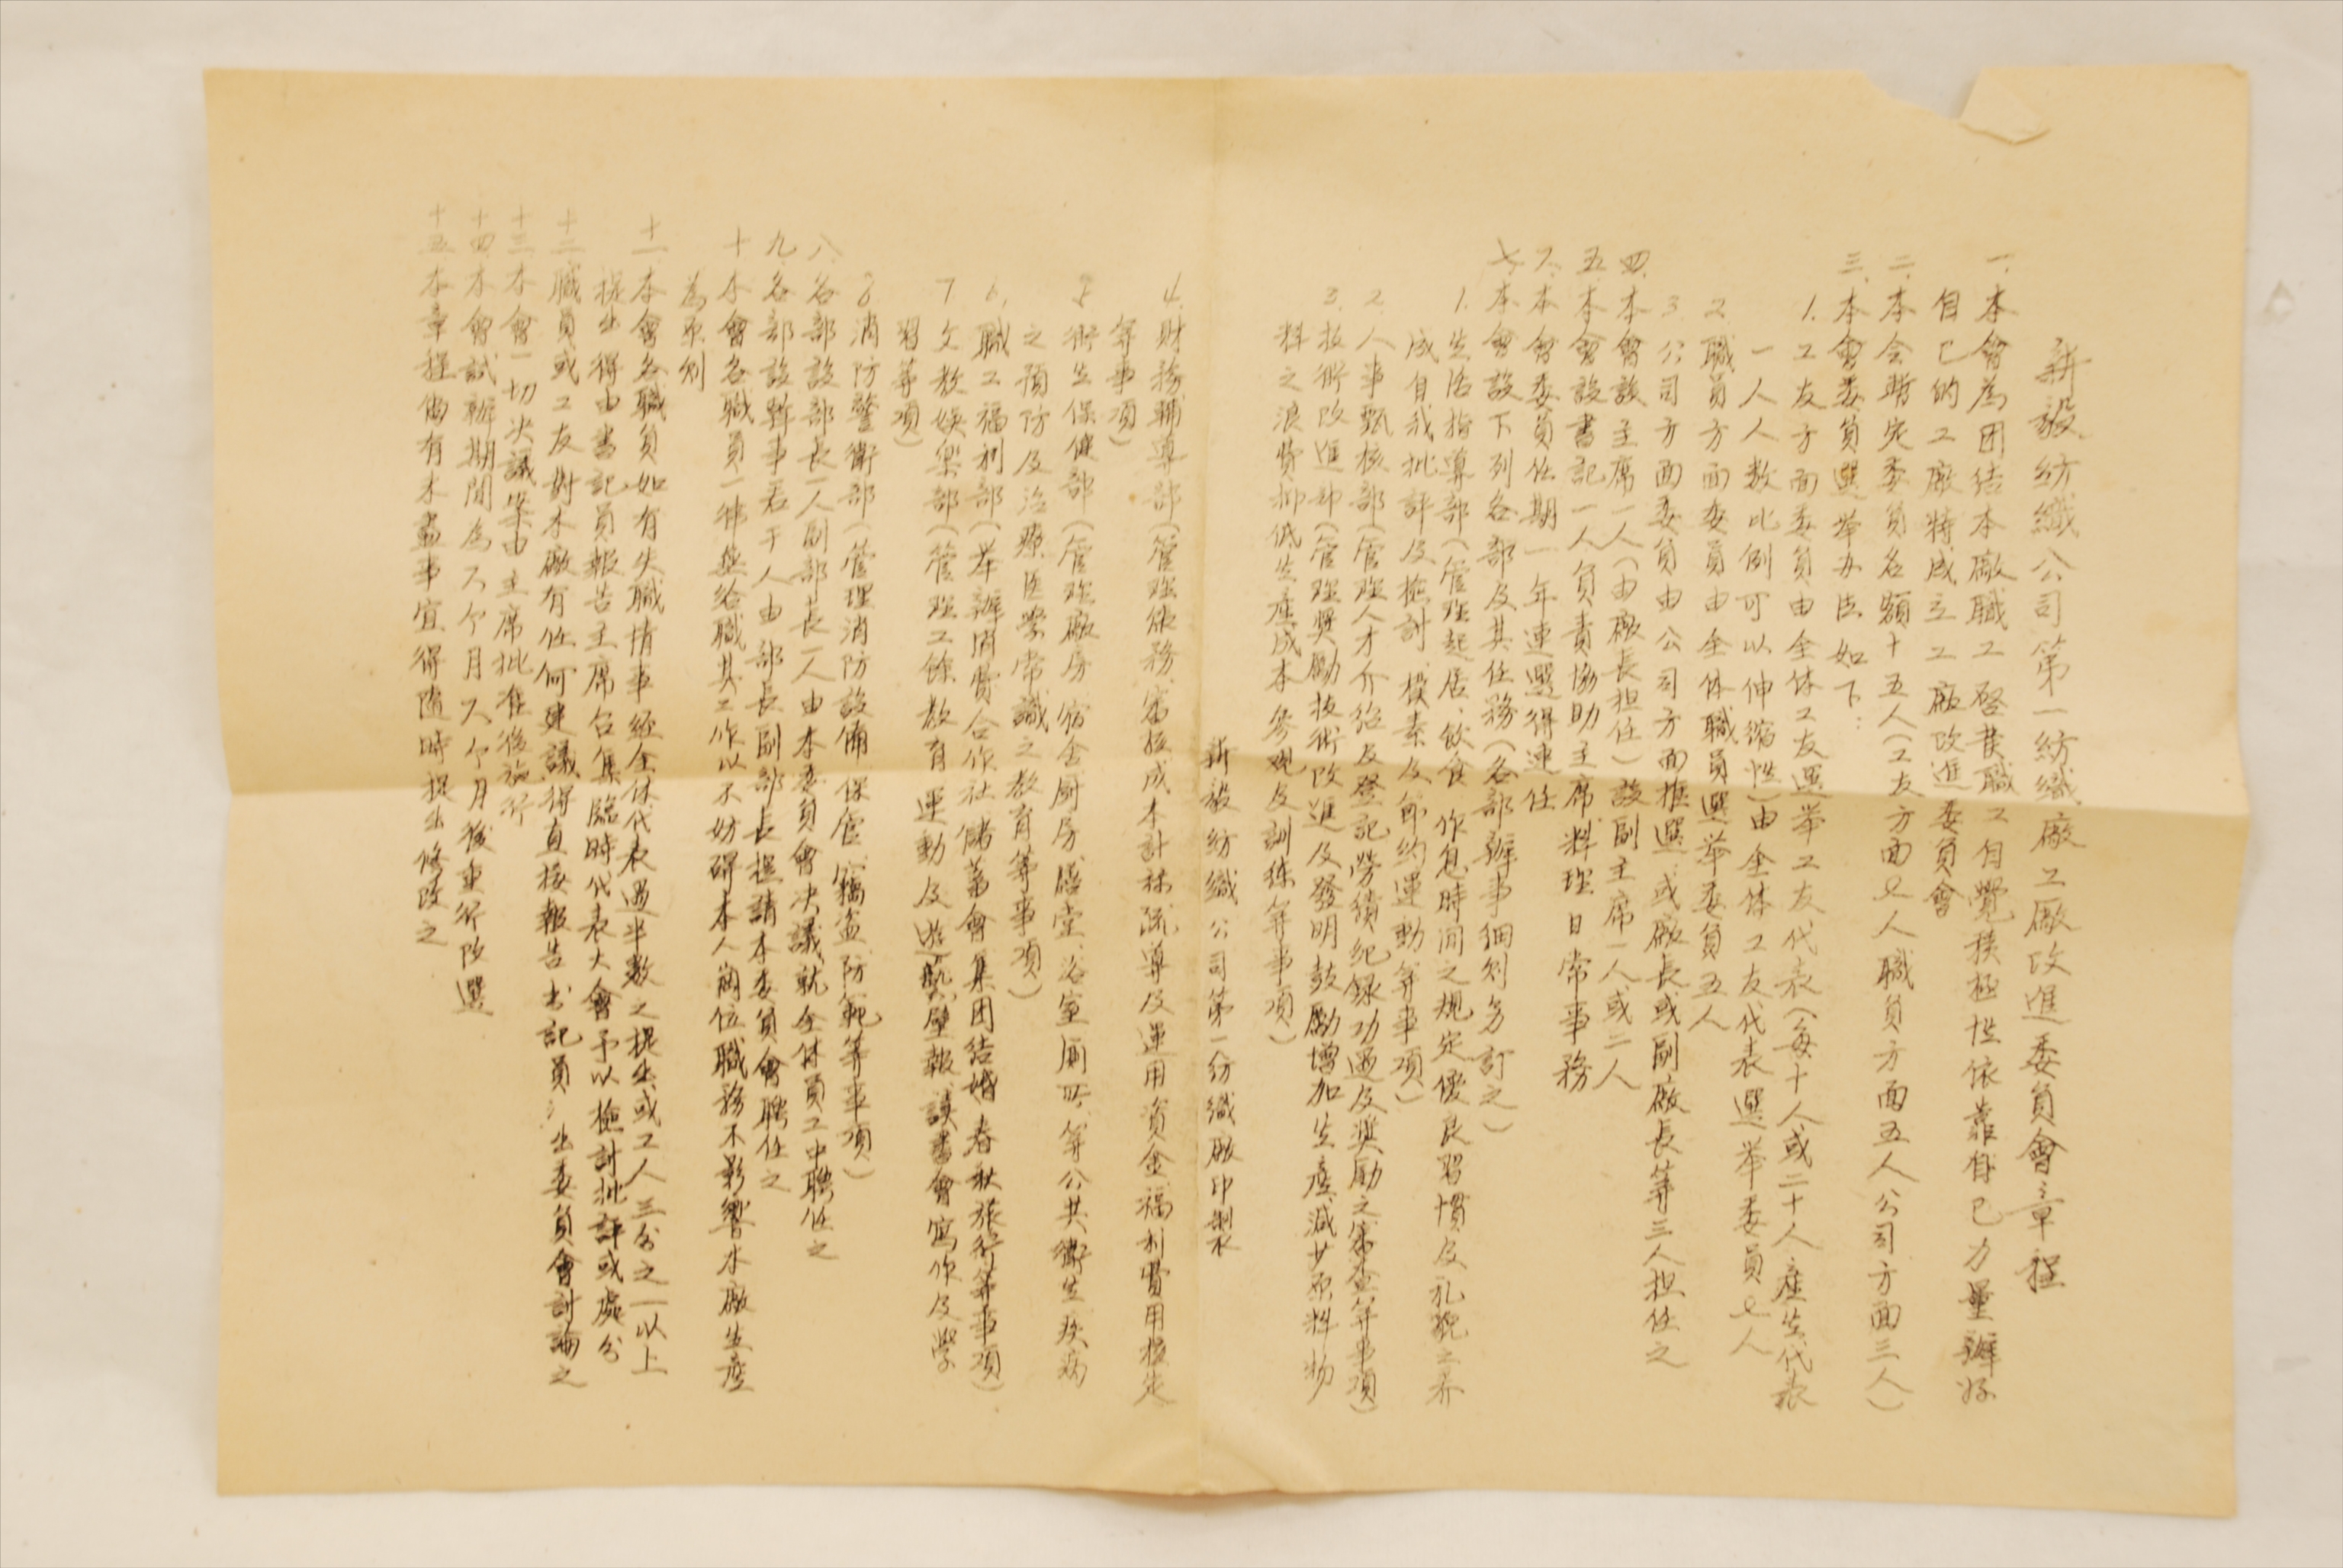 新毅紡織公司第一紡織廠工廠改進委員會章程
一、本會為团结本廠職工啓發職工自覺積極性依靠自己力量辦好
自己的工廠特成立工廠改進委員會
二、本会暫定委員名額十五人(工友方面七人職員方面五人公司方面三人)
三、本會委員選举办法如下:
1. 工友方面委員由全体工友選举工友代表(每十人或二十人產生代表
一人人数比例可以伸縮性)由全体工友代表選举委員七人
2. 職員方面委員由全体職員選举委員五人
3. 公司方面委員由公司方面推選、或廠長或副廠長等三人担任之
四、本會設主席一人(由廠長担任)設副主席一人或二人
五、本會設書記一人負責協助主席料理日常事務
六、本會委員任期一年連選得連任
七、本會設下列各部及其任務(各部辦事細则另訂之)
1. 生活指導部(管理起居、飲食、作息時间之規定優良習慣及礼貌之养
成自我批評及檢討、樸素及節約運動等事項)
2. 人事甄核部(管理人才介绍及登記勞績紀録功過及奨励之審查等事項)
3. 技術改進部(管理奨勵技術改進及發明鼓勵增加生產、減少原料物
料之浪費抑低生產成本參观及訓练等事項)
新毅紡織公司第一紡織廠印製
4. 財務輔導部(管理繳務、審核成本計核疏導及運用資金福利費用核定
等事項)
5. 衛生保健部(管理廠房宿舍厨房、膳堂、浴室厠所、等公共衛生疾病
之預防及治療医學常識之教育等事項)
6. 職工福利部(举辦消費合作社儲蓄會集团结婚春秋旅行等事項)
7. 文教娛樂部(管理工餘教育運動及遊藝、壁報、談書會寫作及學
習等項)
8. 消防警衛部(管理消防設備保管、竊盗、防範等事項)
八、各部設部長一人副部長一人由本委員會决議就全体員工中聘任之
九、各部設幹事若干人由部長副部長提請本委員會聘任之
十、本會各職員一律無給職其工作以不妨碍本人崗位職務不影響本廠生產
為原则
十一、本會各職員如有失職情事經全体代表過半數之提出或工人三分之一以上
提出得由書記員報告主席召集臨時代表大會予以檢討批評或處分
十二、職員或工友對本廠有任何建議得直接報告书記員提出委員會討論之
十三、本會一切决議案由主席批准後施行
十四、本會試辦期間為六个月六个月後重行改選
十五、本章程倘有未盡事宜得隨時提出修改之